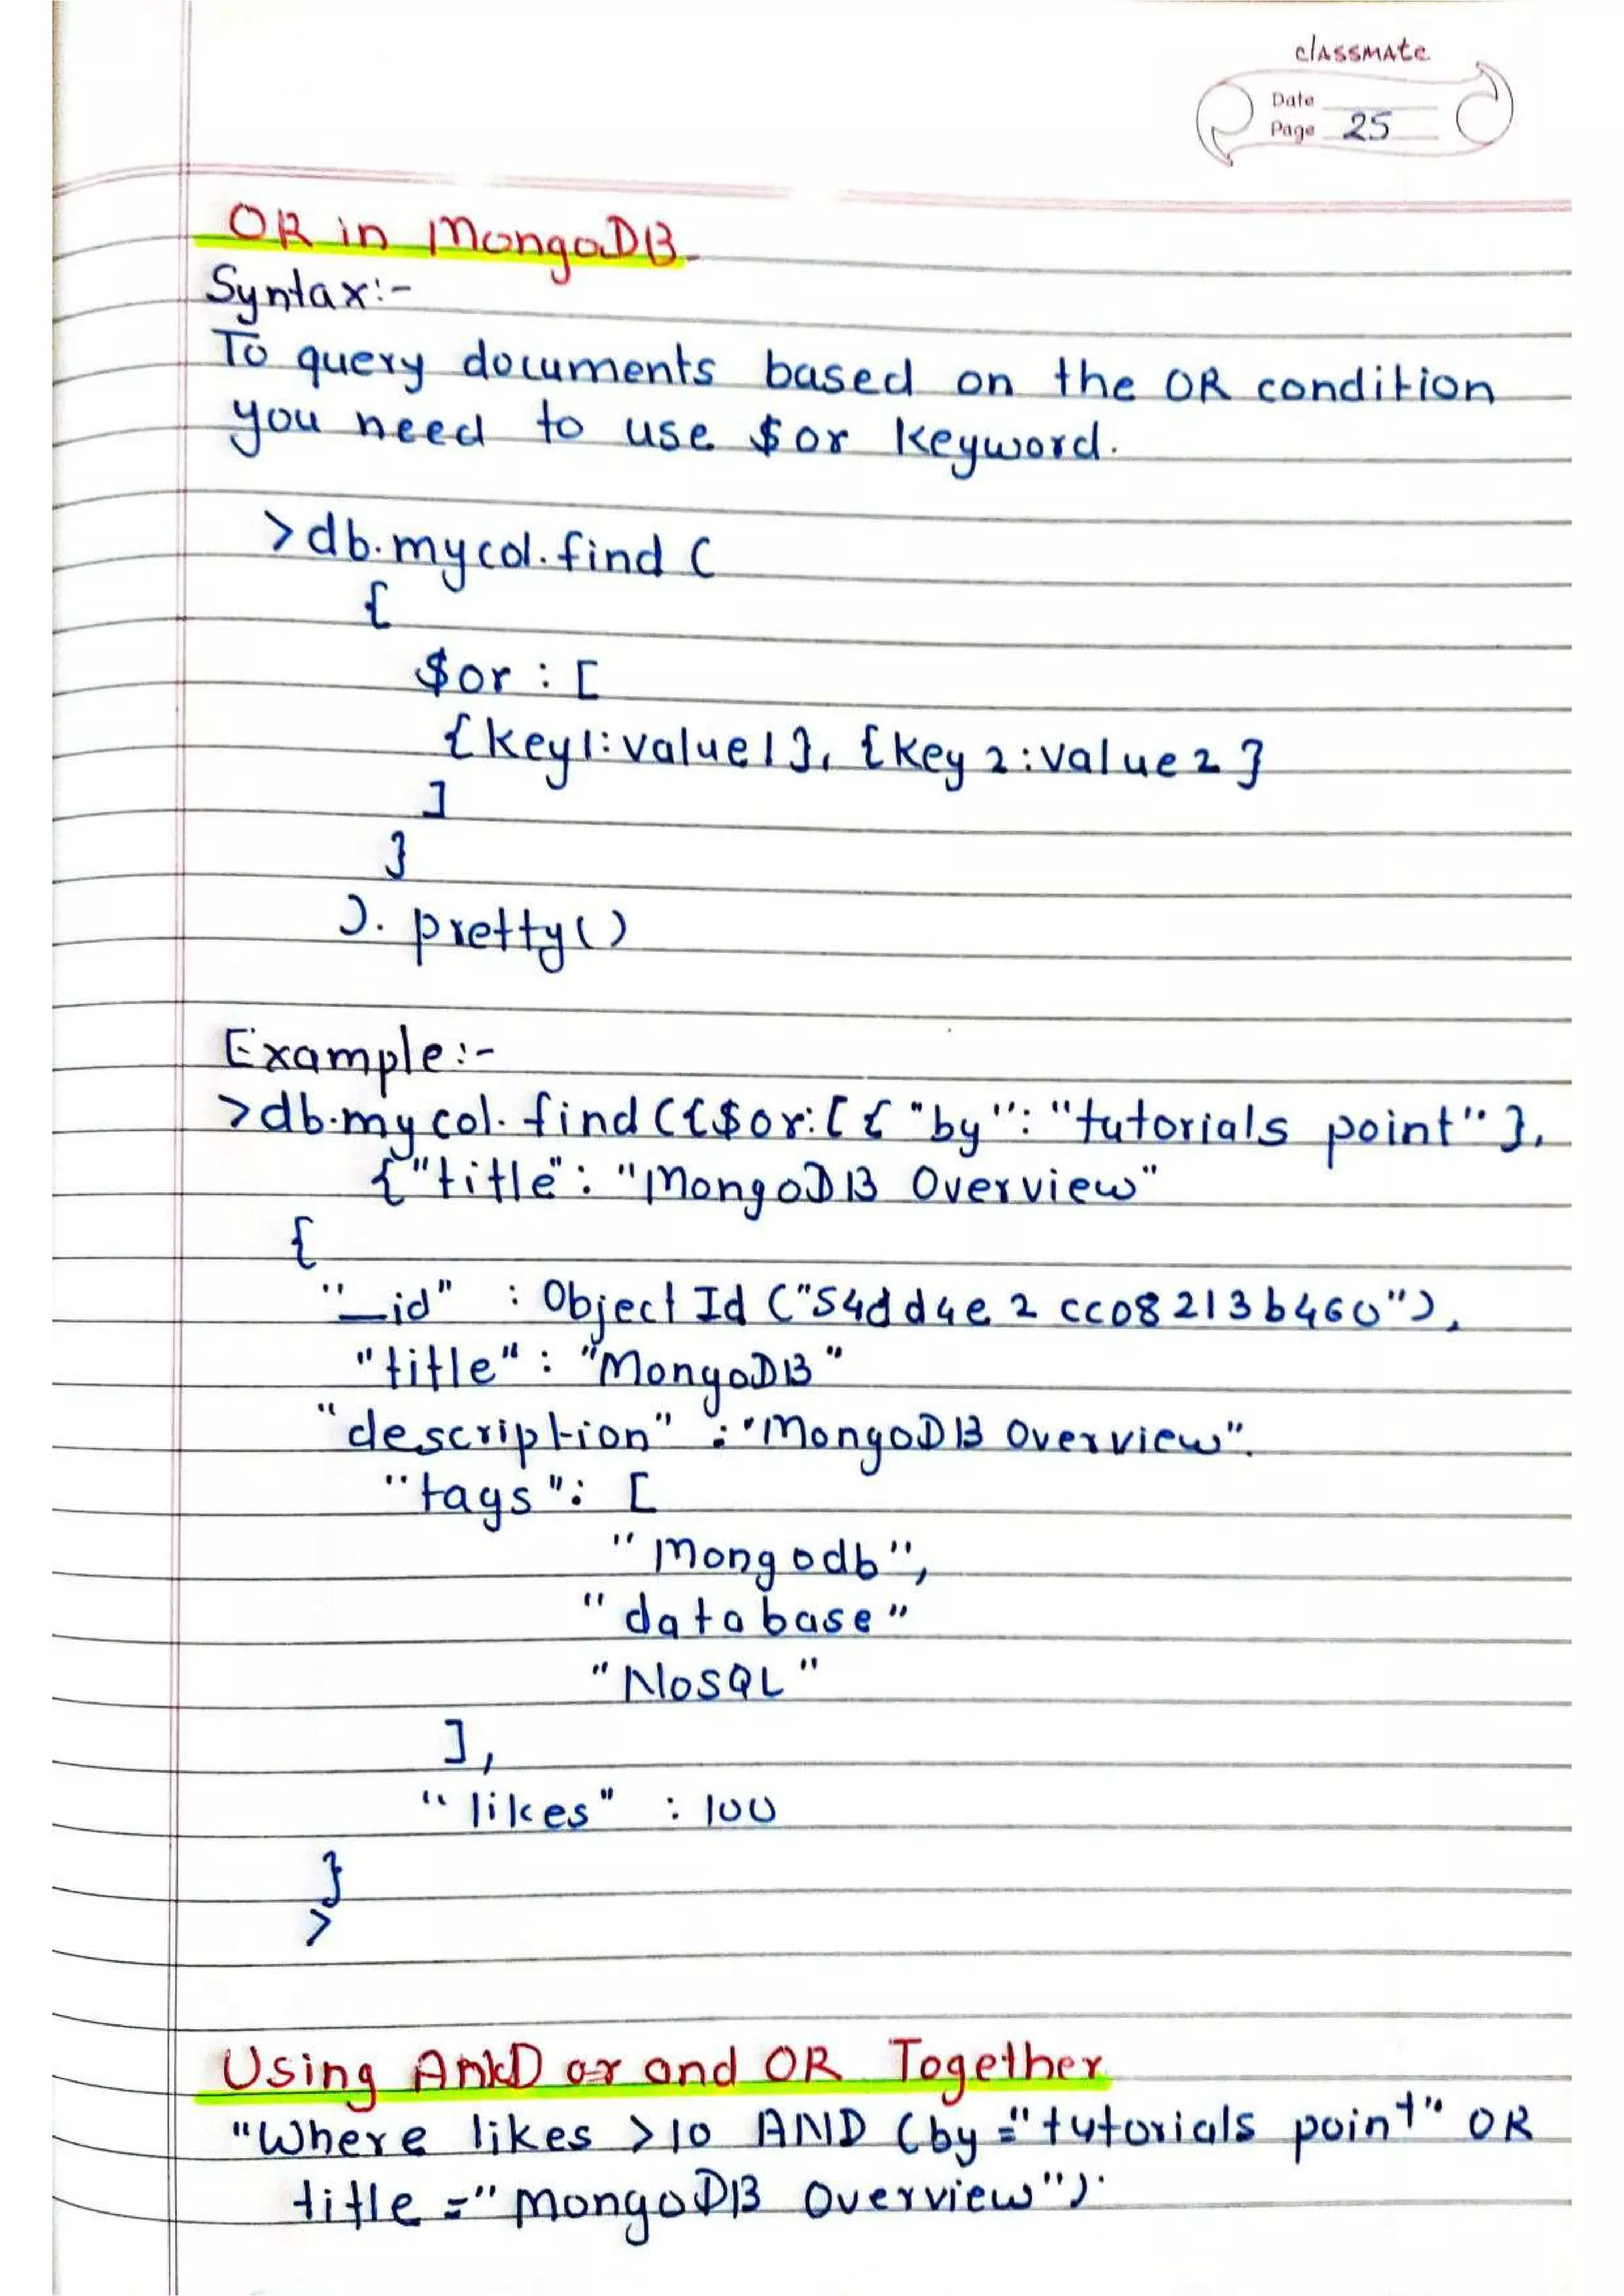 classmate
Date
Page 25
OR in MongoDB
Syntax:-
To query documents based on the OR condition
you need to use $or keyword.
>db.mycol.find (
{
$or : [
{key1:value1}, {key 2:value 2}
]
}
). pretty()
Example:-
>db.mycol.find({$or:[{ "by": "tutorials point"},
{"title": "MongoDB Overview"
{
"_id" : Object Id ("54dd4e2cc08213b460"),
"title" : "MongoDB"
"description" : "MongoDB Overview".
"tags": [
"Mongodb",
"database"
"NoSQL"
],
"likes" : 100
}
>
Using AND or and OR Together
"Where likes >10 AND (by ="tutorials point" OR
title ="MongoDB Overview").